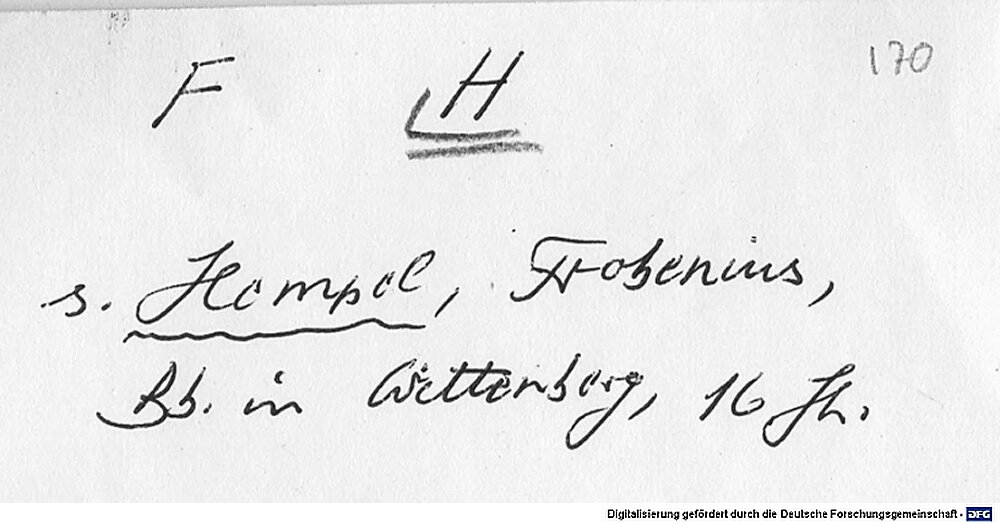 F H 170
s. Hempel, Frobenius,
Bb. in Wittenberg, 16 Jh.
Digitalisierung gefördert durch die Deutsche Forschungsgemeinschaft - DFG